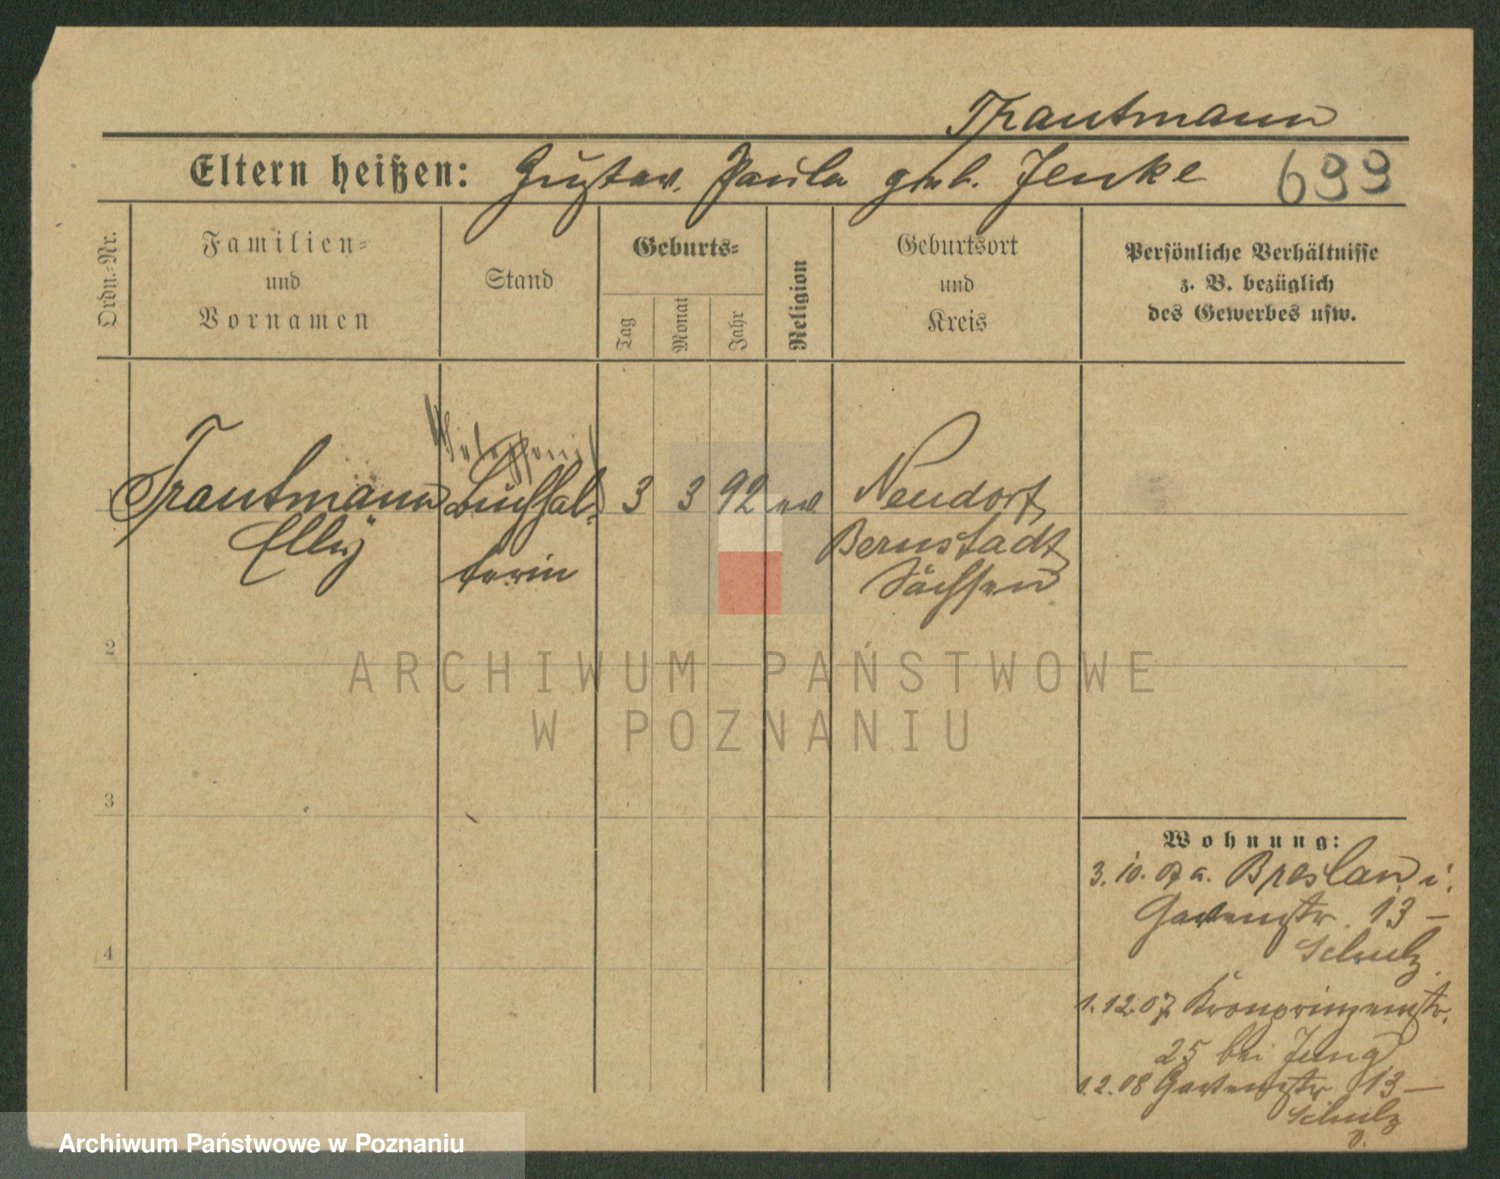 Trautmann
Eltern heißen: Gustav. Paula geb. Jenke 699
Ordn.-Nr.
Familien-
und
Vornamen
Stand
Geburts-
Tag
Monat
Jahr
Religion
Geburtsort
und
Kreis
Persönliche Verhältnisse
z. B. bezüglich
des Gewerbes usw.
Trautmann Buchhal- 3 3 92 ev Neudorf
Elly terin Bernstadt
Sachsen
2
3
4
Wohnung:
3.10.07 a. Breslau i.
Gartenstr. 13 -
Schulz
1.12.07 Kronprinzenstr.
25 bei Jung
1.2.08 Gartenstr. 13 -
Schulz
ARCHIWUM PAŃSTWOWE
W POZNANIU
Archiwum Państwowe w Poznaniu